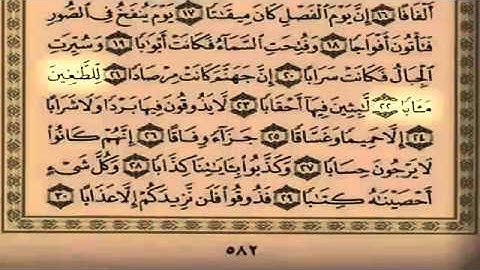 أَلْفَافًا ١٦ إِنَّ يَوْمَ ٱلْفَصْلِ كَانَ مِيقَـٰتًا ١٧ يَوْمَ يُنفَخُ فِى ٱلصُّورِ
فَتَأْتُونَ أَفْوَاجًا ١٨ وَفُتِحَتِ ٱلسَّمَآءُ فَكَانَتْ أَبْوَٰبًا ١٩ وَسُيِّرَتِ
ٱلْجِبَالُ فَكَانَتْ سَرَابًا ٢٠ إِنَّ جَهَنَّمَ كَانَتْ مِرْصَادًا ٢١ لِّلطَّـٰغِينَ
مَـَٔابًا ٢٢ لَّـٰبِثِينَ فِيهَآ أَحْقَابًا ٢٣ لَّا يَذُوقُونَ فِيهَا بَرْدًا وَلَا شَرَابًا
٢٤ إِلَّا حَمِيمًا وَغَسَّاقًا ٢٥ جَزَآءً وِفَاقًا ٢٦ إِنَّهُمْ كَانُوا۟
لَا يَرْجُونَ حِسَابًا ٢٧ وَكَذَّبُوا۟ بِـَٔايَـٰتِنَا كِذَّابًا ٢٨ وَكُلَّ شَىْءٍ
أَحْصَيْنَـٰهُ كِتَـٰبًا ٢٩ فَذُوقُوا۟ فَلَن نَّزِيدَكُمْ إِلَّا عَذَابًا ٣٠
٥٨٢